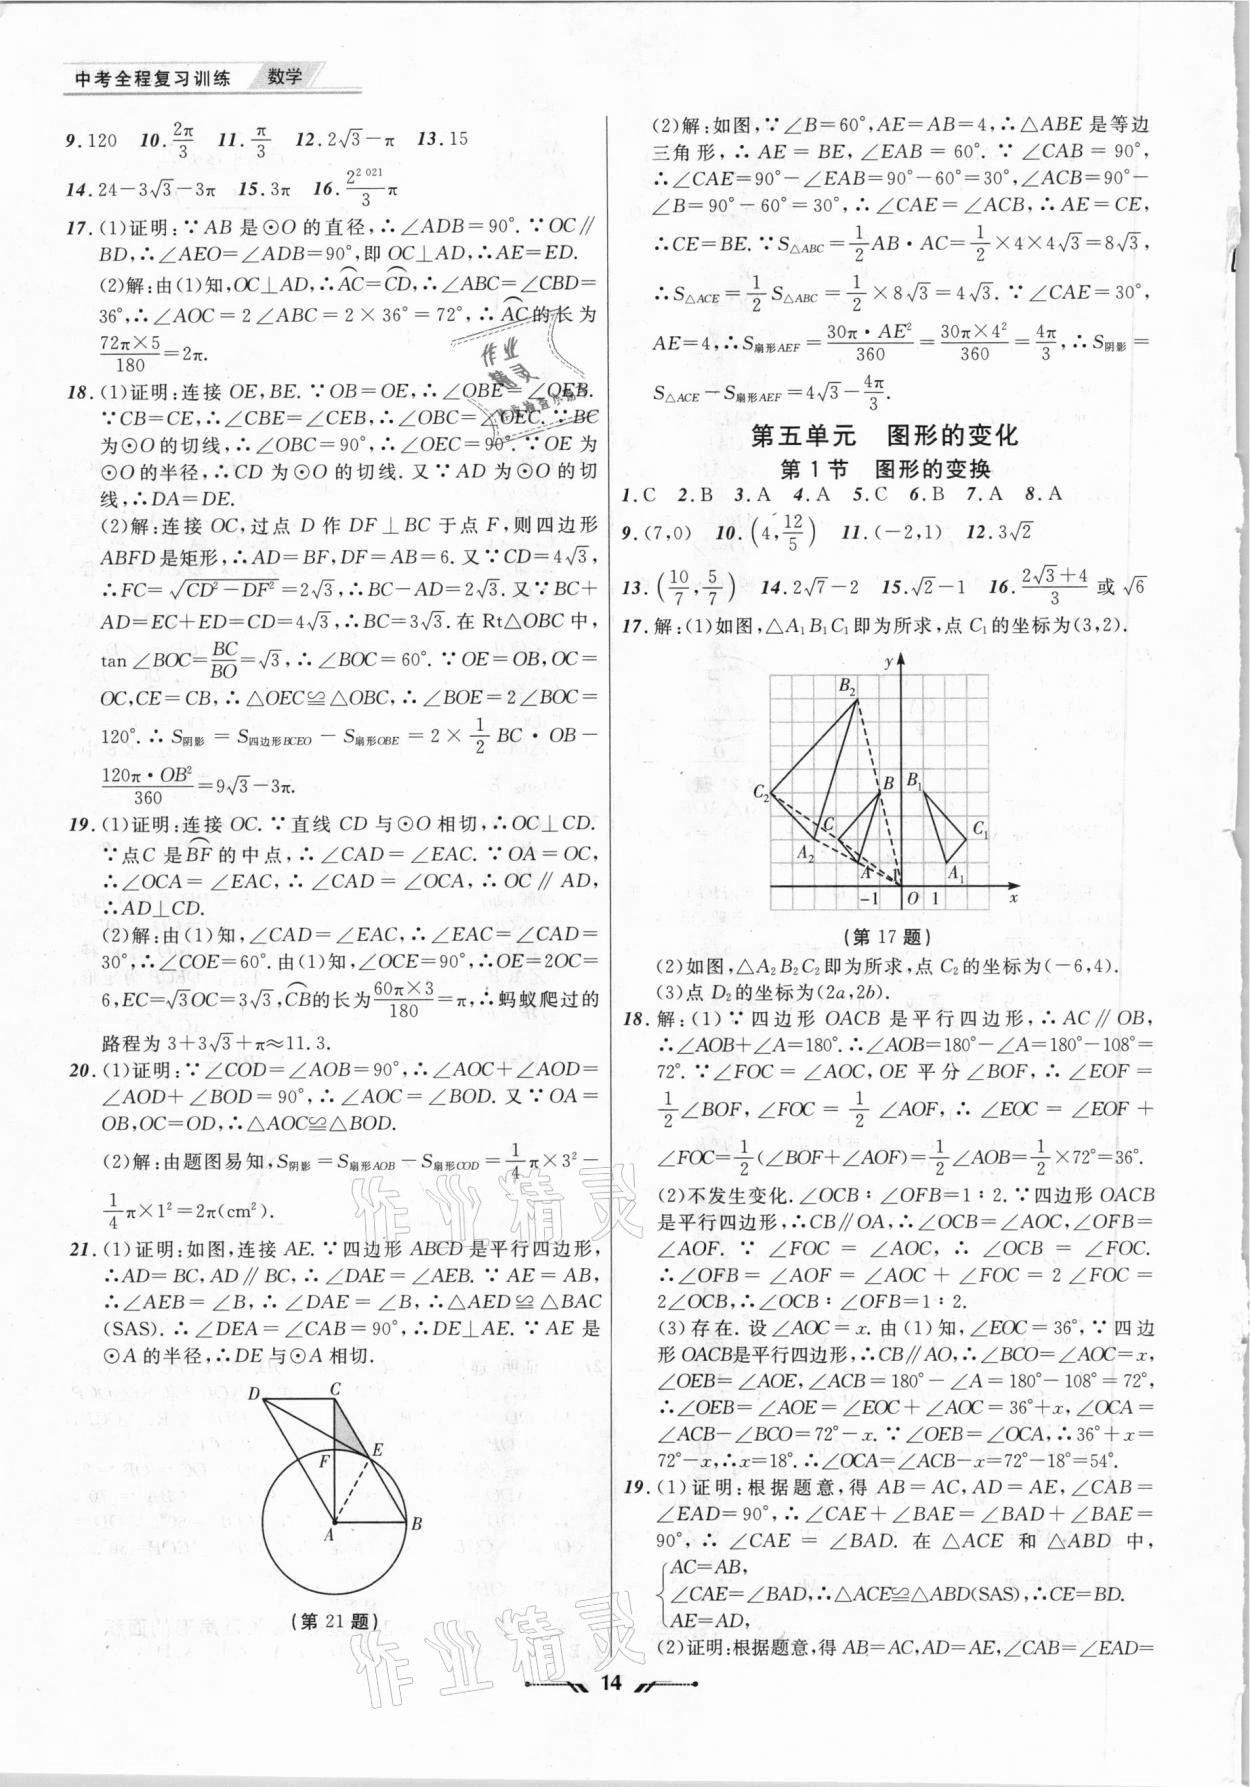 中考全程复习训练 数学
9. 120 10. 2π/3 11. π/3 12. 2√3-π 13. 15
14. 24-3√3-3π 15. 3π 16. 2^2 021/3 π
17. (1)证明:∵AB是⊙O的直径,∴∠ADB=90°.∵OC∥
BD,∴∠AEO=∠ADB=90°,即OC⊥AD,∴AE=ED.
(2)解:由(1)知,OC⊥AD,∴⌒AC=⌒CD,∴∠ABC=∠CBD=
36°,∴∠AOC=2∠ABC=2×36°=72°,∴⌒AC的长为
72π×5/180=2π.
18. (1)证明:连接OE,BE.∵OB=OE,∴∠OBE=∠OEB.
∵CB=CE,∴∠CBE=∠CEB,∴∠OBC=∠OEC.∵BC
为⊙O的切线,∴∠OBC=90°,∴∠OEC=90°.∵OE为
⊙O的半径,∴CD为⊙O的切线.又∵AD为⊙O的切
线,∴DA=DE.
(2)解:连接OC,过点D作DF⊥BC于点F,则四边形
ABFD是矩形,∴AD=BF,DF=AB=6.又∵CD=4√3,
∴FC=√(CD²-DF²)=2√3,∴BC-AD=2√3.又∵BC+
AD=EC+ED=CD=4√3,∴BC=3√3.在Rt△OBC中,
tan∠BOC=BC/BO=√3,∴∠BOC=60°.∵OE=OB,OC=
OC,CE=CB,∴△OEC≌△OBC,∴∠BOE=2∠BOC=
120°.∴S阴影=S四边形BCEO-S扇形OBE=2×1/2 BC·OB-
120π·OB²/360=9√3-3π.
19. (1)证明:连接OC.∵直线CD与⊙O相切,∴OC⊥CD.
∵点C是⌒BF的中点,∴∠CAD=∠EAC.∵OA=OC,
∴∠OCA=∠EAC,∴∠CAD=∠OCA,∴OC∥AD,
∴AD⊥CD.
(2)解:由(1)知,∠CAD=∠EAC,∴∠EAC=∠CAD=
30°,∴∠COE=60°.由(1)知,∠OCE=90°,∴OE=2OC=
6,EC=√3OC=3√3,⌒CB的长为60π×3/180=π,∴蚂蚁爬过的
路程为3+3√3+π≈11.3.
20. (1)证明:∵∠COD=∠AOB=90°,∴∠AOC+∠AOD=
∠AOD+∠BOD=90°,∴∠AOC=∠BOD.又∵OA=
OB,OC=OD,∴△AOC≌△BOD.
(2)解:由题图易知,S阴影=S扇形AOB-S扇形COD=1/4 π×3²-
1/4 π×1²=2π(cm²).
21. (1)证明:如图,连接AE.∵四边形ABCD是平行四边形,
∴AD=BC,AD∥BC,∴∠DAE=∠AEB.∵AE=AB,
∴∠AEB=∠B,∴∠DAE=∠B,∴△AED≌△BAC
(SAS).∴∠DEA=∠CAB=90°,∴DE⊥AE.∵AE是
⊙A的半径,∴DE与⊙A相切.
D C
E
F
A B
(第21题)
(2)解:如图,∵∠B=60°,AE=AB=4,∴△ABE是等边
三角形,∴AE=BE,∠EAB=60°.∵∠CAB=90°,
∴∠CAE=90°-∠EAB=90°-60°=30°,∠ACB=90°-
∠B=90°-60°=30°,∴∠CAE=∠ACB,∴AE=CE,
∴CE=BE.∵S△ABC=1/2 AB·AC=1/2×4×4√3=8√3,
∴S△ACE=1/2 S△ABC=1/2×8√3=4√3.∵∠CAE=30°,
AE=4,∴S扇形AEF=30π·AE²/360=30π×4²/360=4π/3,∴S阴影=
S△ACE-S扇形AEF=4√3-4π/3.
第五单元 图形的变化
第1节 图形的变换
1. C 2. B 3. A 4. A 5. C 6. B 7. A 8. A
9. (7,0) 10. (4,12/5) 11. (-2,1) 12. 3√2
13. (10/7,5/7) 14. 2√7-2 15. √2-1 16. (2√3+4)/3或√6
17. 解:(1)如图,△A₁B₁C₁即为所求,点C₁的坐标为(3,2).
y
B₂
C₂ B B₁
C C₁
A₂ A A₁
1
-1 O 1 x
(第17题)
(2)如图,△A₂B₂C₂即为所求,点C₂的坐标为(-6,4).
(3)点D₂的坐标为(2a,2b).
18. 解:(1)∵四边形OACB是平行四边形,∴AC∥OB,
∴∠AOB+∠A=180°.∴∠AOB=180°-∠A=180°-108°=
72°.∵∠FOC=∠AOC,OE平分∠BOF,∴∠EOF=
1/2∠BOF,∠FOC=1/2∠AOF,∴∠EOC=∠EOF+
∠FOC=1/2(∠BOF+∠AOF)=1/2∠AOB=1/2×72°=36°.
(2)不发生变化.∠OCB∶∠OFB=1∶2.∵四边形OACB
是平行四边形,∴CB∥OA,∴∠OCB=∠AOC,∠OFB=
∠AOF.∵∠FOC=∠AOC,∴∠OCB=∠FOC.
∴∠OFB=∠AOF=∠AOC+∠FOC=2∠FOC=
2∠OCB,∴∠OCB∶∠OFB=1∶2.
(3)存在.设∠AOC=x.由(1)知,∠EOC=36°,∵四边
形OACB是平行四边形,∴CB∥AO,∴∠BCO=∠AOC=x,
∠OEB=∠AOE,∠ACB=180°-∠A=180°-108°=72°,
∴∠OEB=∠AOE=∠EOC+∠AOC=36°+x,∠OCA=
∠ACB-∠BCO=72°-x.∵∠OEB=∠OCA,∴36°+x=
72°-x,∴x=18°.∴∠OCA=∠ACB-x=72°-18°=54°.
19. (1)证明:根据题意,得AB=AC,AD=AE,∠CAB=
∠EAD=90°,∴∠CAE+∠BAE=∠BAD+∠BAE=
90°,∴∠CAE=∠BAD.在△ACE和△ABD中,
AC=AB,
∠CAE=∠BAD,∴△ACE≌△ABD(SAS),∴CE=BD.
AE=AD,
(2)证明:根据题意,得AB=AC,AD=AE,∠CAB=∠EAD=
14
作业精灵
作业精灵
作业精灵